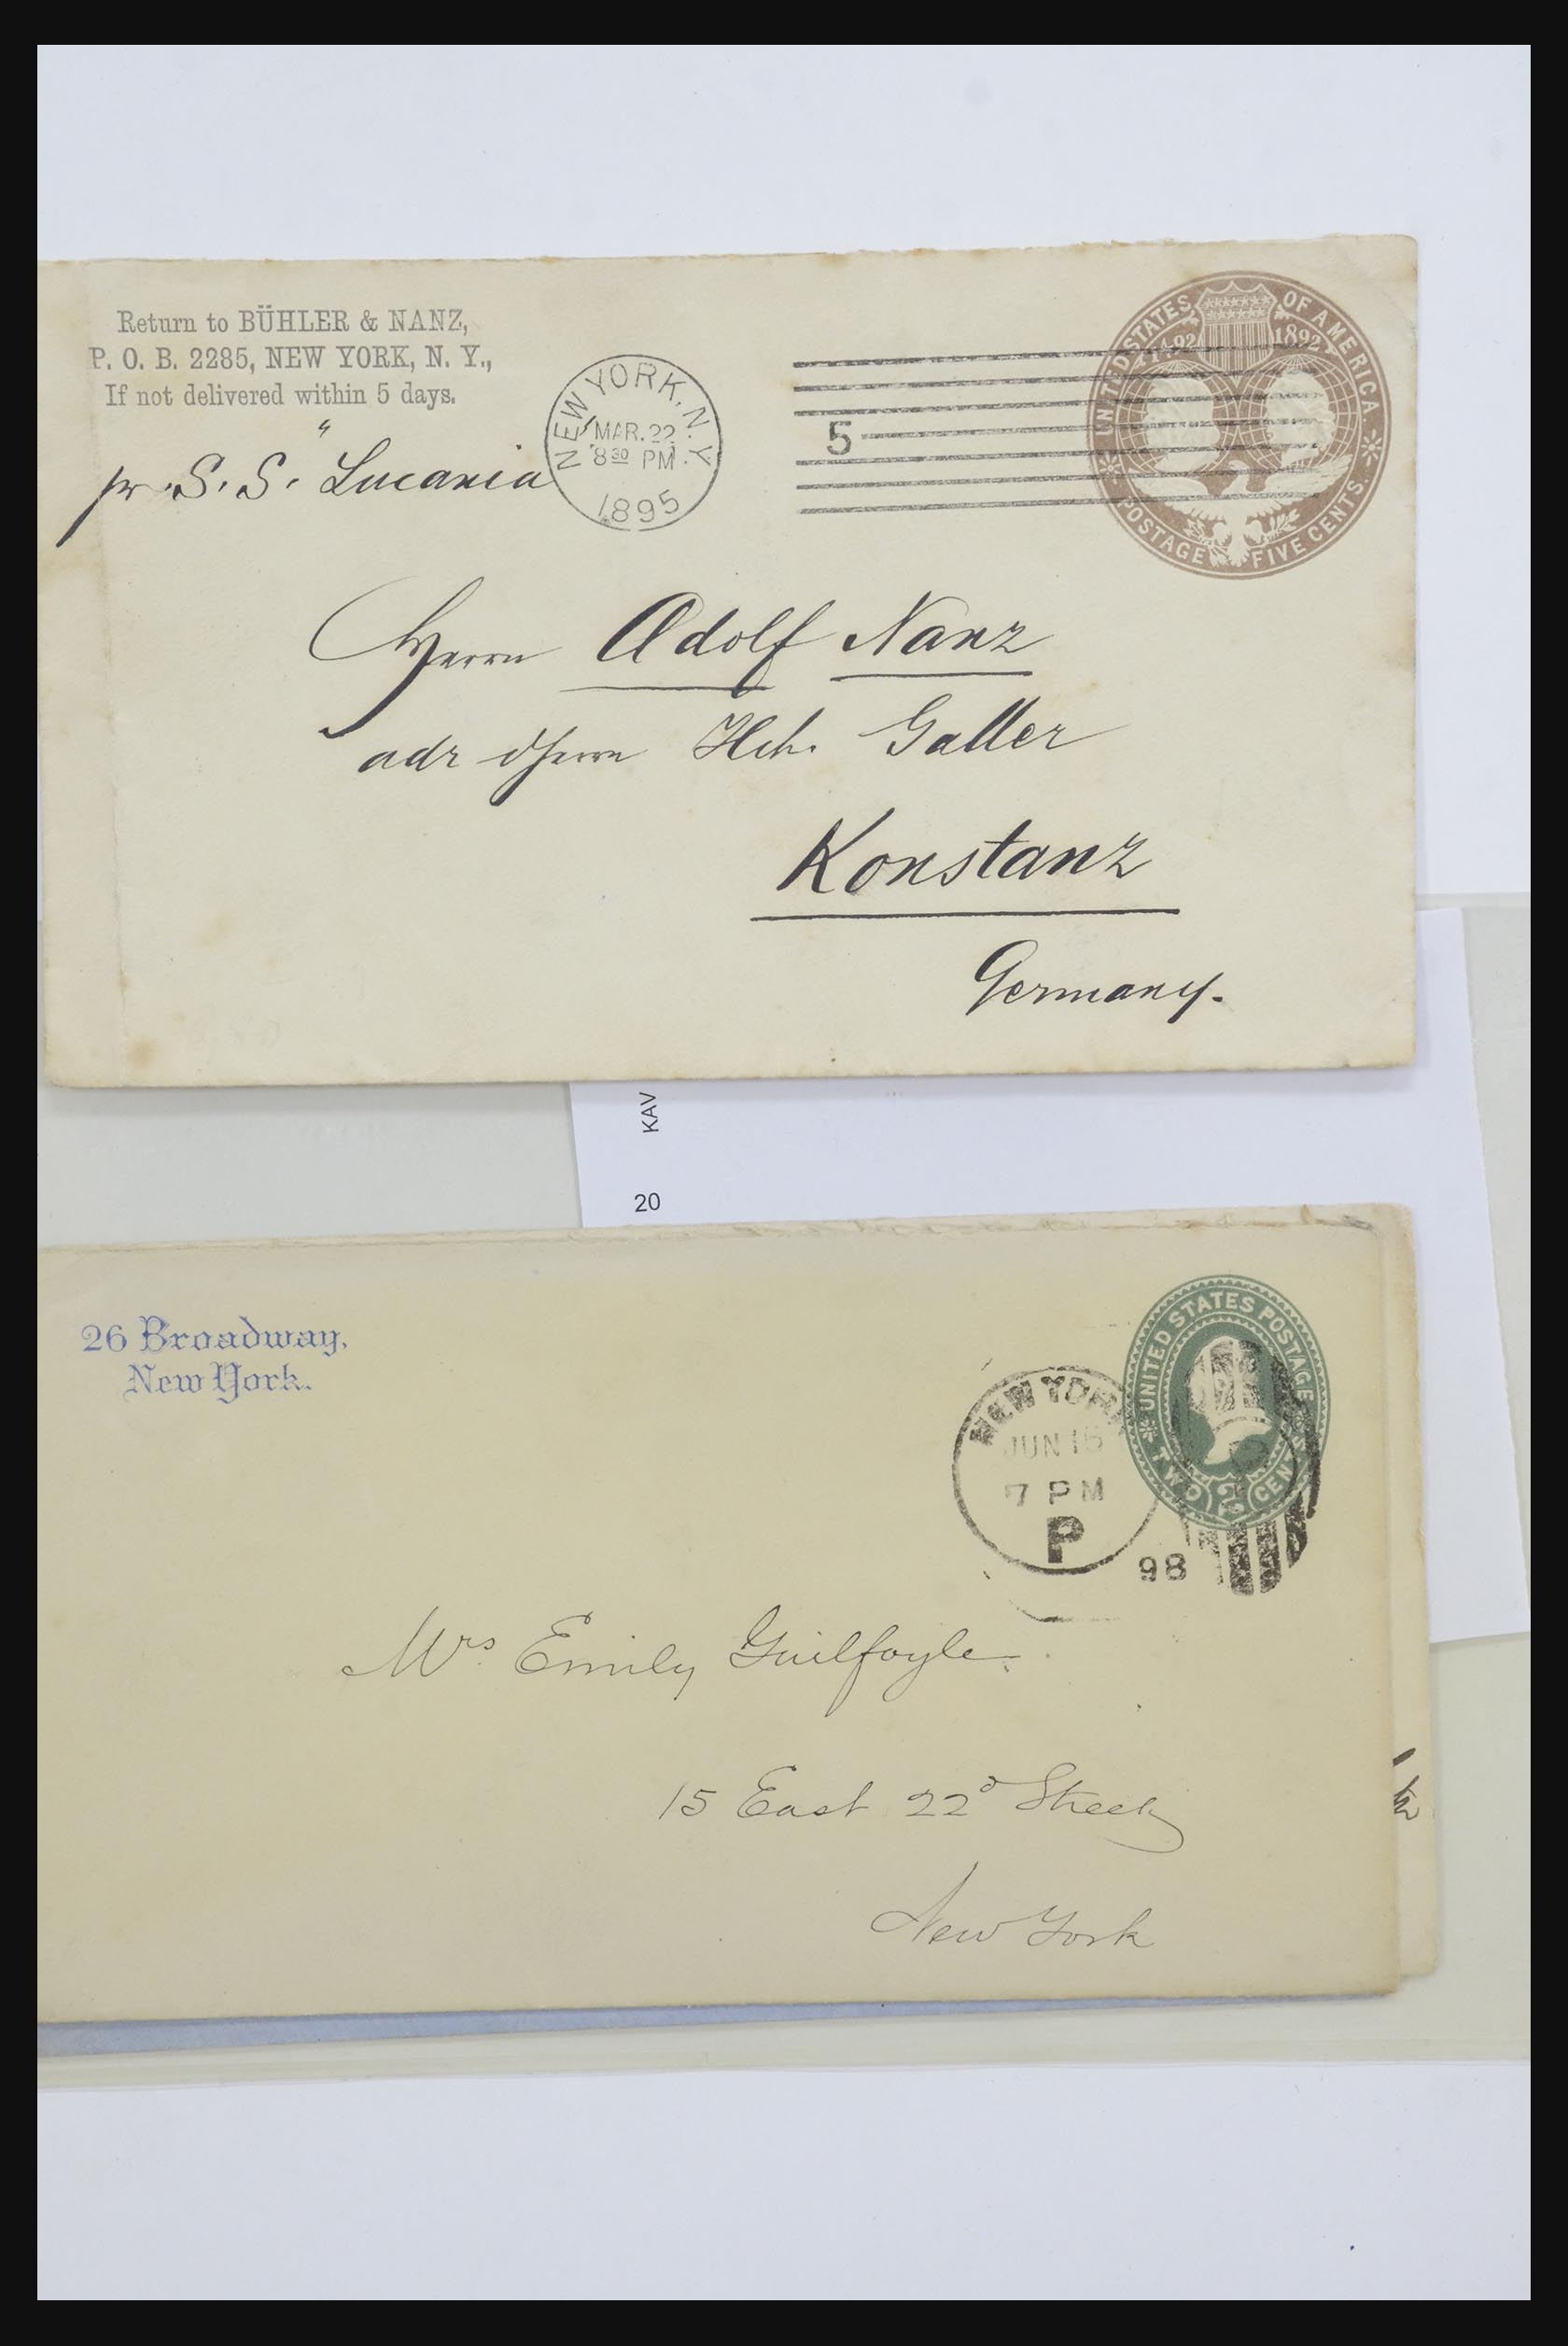 Return to BÜHLER & NANZ,
P. O. B. 2285, NEW YORK, N. Y.,
If not delivered within 5 days.
pr. S. S. "Lucania
NEW YORK, N.Y.
MAR. 22
8 30 PM
1895
5
UNITED STATES OF AMERICA
1492 1892
POSTAGE FIVE CENTS.
Herrn Adolf Nanz
adr Herrn Hch. Galler
Konstanz
Germany.
KAV
20
26 Broadway,
New York.
NEW YORK
JUN 16
7 PM
P
98
UNITED STATES POSTAGE
TWO 2 CENTS
Mrs. Emily Guilfoyle.
15 East 22d Street
New York